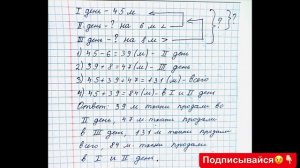 I день - 45 м
II день - ? на 6 м <
III день - ? на 8 м >
? ?
1) 45 - 6 = 39 (м) - II день
2) 39 + 8 = 47 (м) - III день
3) 45 + 39 + 47 = 131 (м) - всего
4) 45 + 39 = 84 (м) - в I и II день
Ответ: 39 м ткани продали во
II день, 47 м ткани продали
в III день, 131 м ткани продали
всего, 84 м ткани продали
в I и II день.
Подписывайся